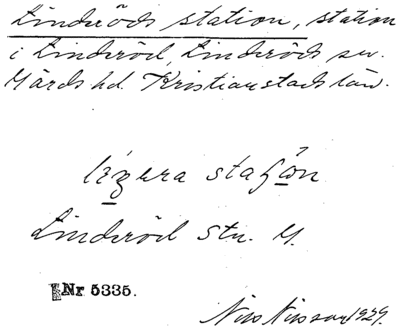 Linderöds station, station
i Linderöd, Linderöds sn.
Gärds hd. Kristianstads län.
stašo̲n
Linderöd stn. 4.
Nr 5335.
Nils Nilsson 1929.